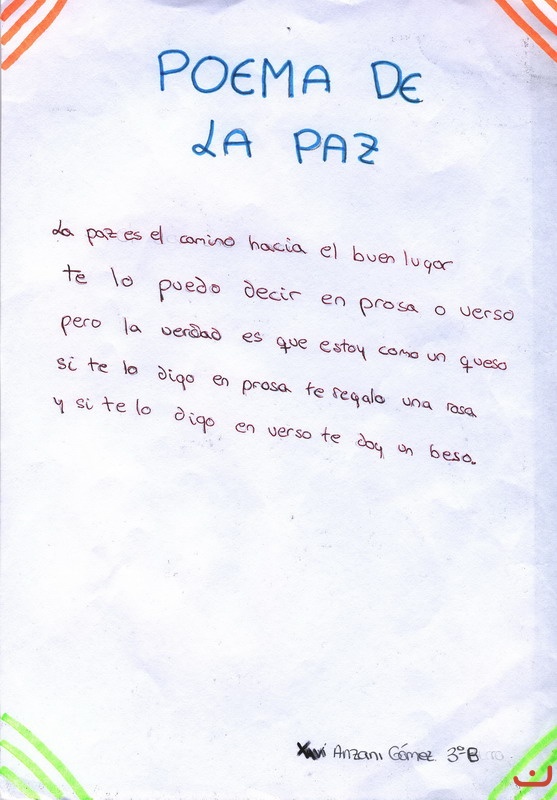 POEMA DE
LA PAZ
La paz es el camino hacia el buen lugar
te lo puedo decir en prosa o verso
pero la verdad es que estoy como un queso
si te lo digo en prosa te regalo una rosa
y si te lo digo en verso te doy un beso.
Xavi Anzani Gómez 3ºB